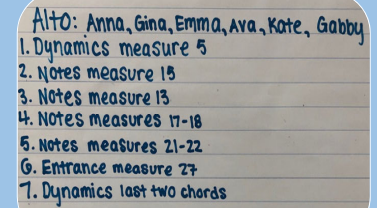 Alto: Anna, Gina, Emma, Ava, Kate, Gabby
1. Dynamics measure 5
2. Notes measure 15
3. Notes measure 13
4. Notes measures 17-18
5. Notes measures 21-22
6. Entrance measure 27
7. Dynamics last two chords